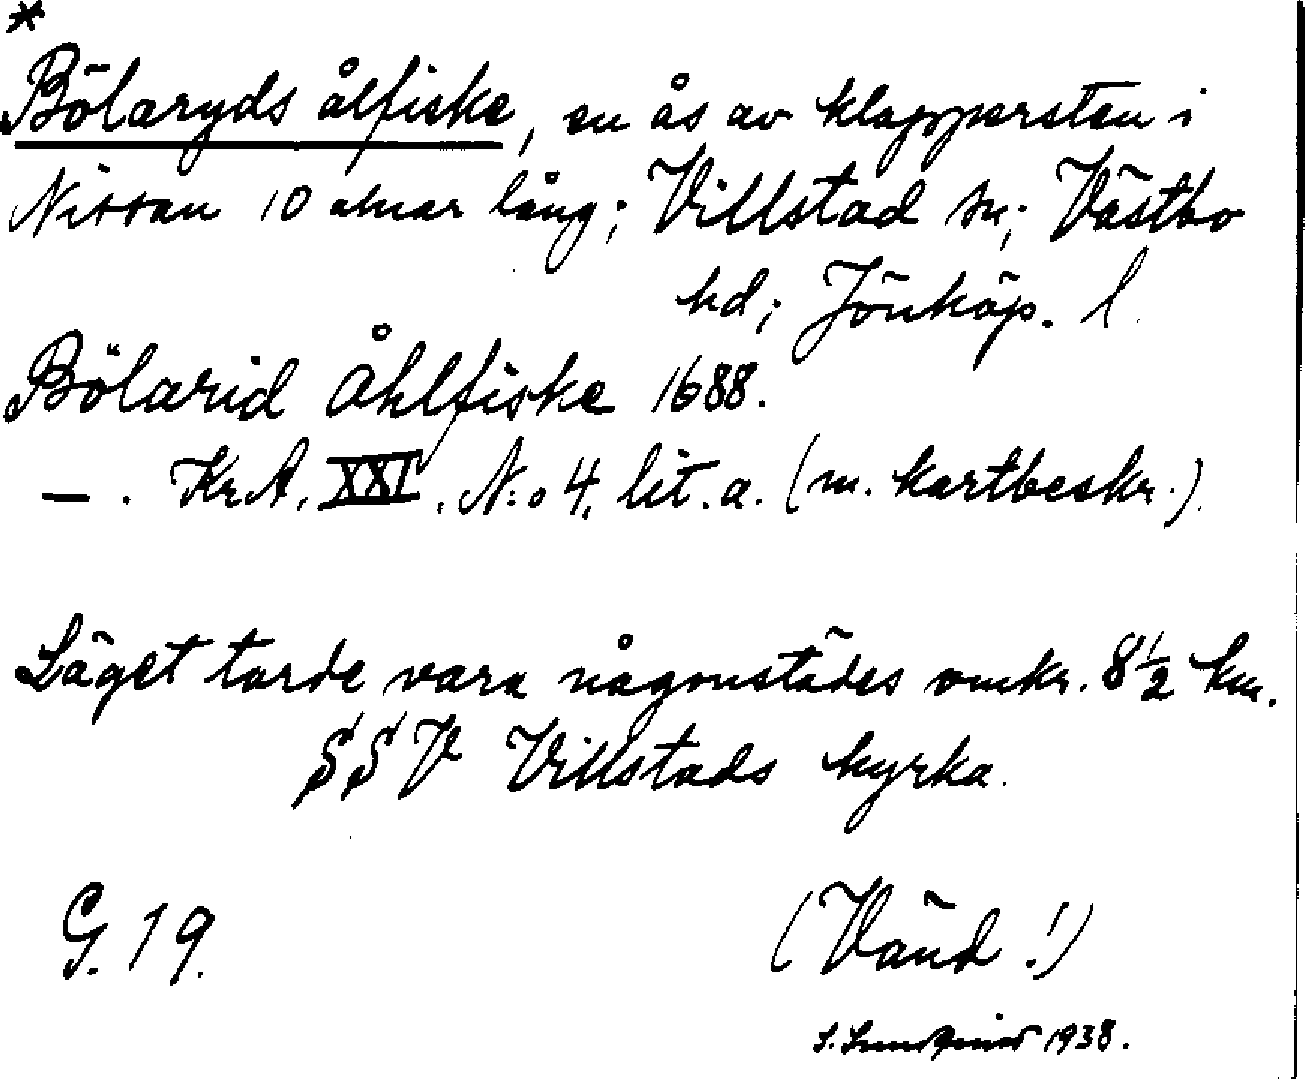 *
Bölaryds ålfiske, en ås av klappersten i
Nissan 10 alnar lång; Villstad sn; Västbo
hd; Jönköp. l.
Bölarid Åhlfiske 1688.
— . Kr.A. XXI. N:o 4. lit. a. (m. kartbeskr.)
Läget torde vara någonstädes omkr. 8 1/2 km.
SSV Villstads kyrka.
G. 19.
(Vänd!)
1938.